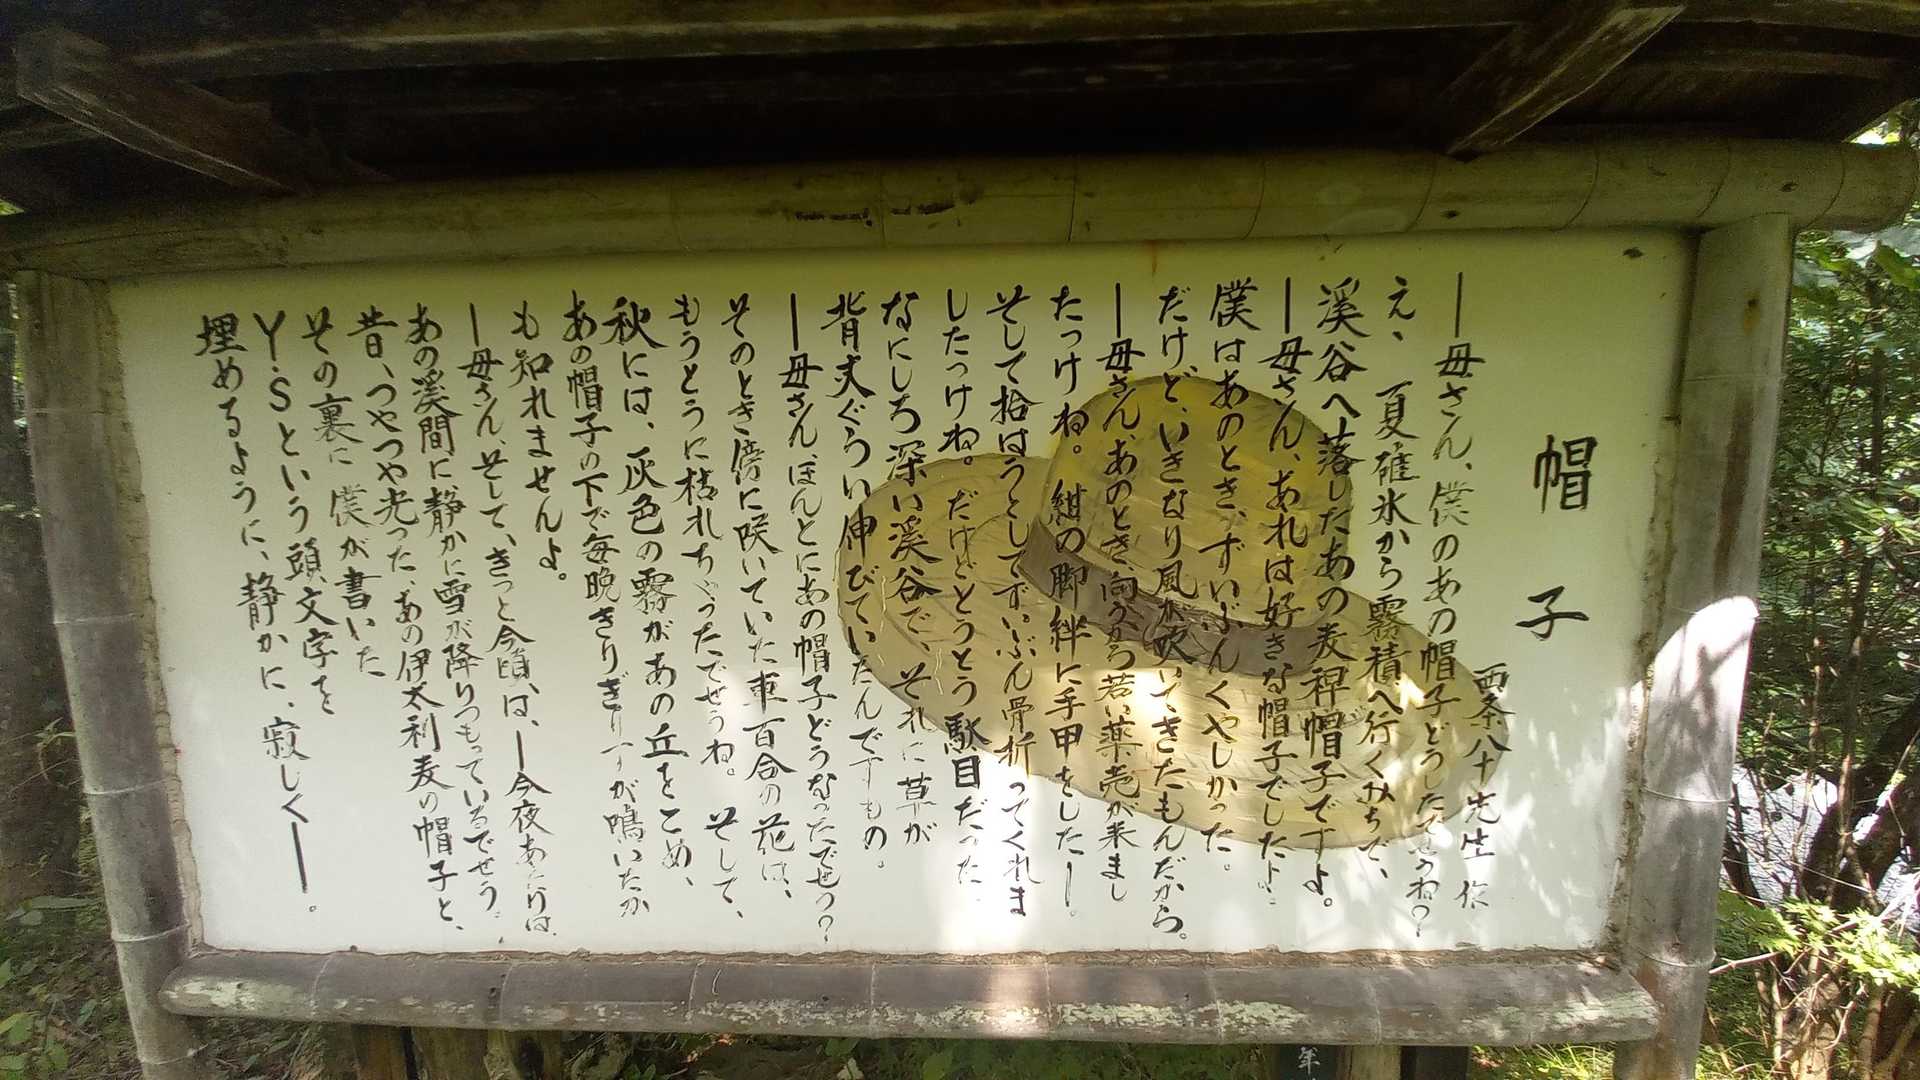 帽子
西条八十先生作
―母さん、僕のあの帽子どうしたでせうね?
え、夏碓氷から霧積へ行くみちで、
渓谷へ落したあの麦稈帽子ですよ。
―母さん、あれは好きな帽子でしたよ。
僕はあのとき、ずいぶんくやしかった。
だけど、いきなり風が吹いて、きたもんだから。
―母さん、あのとき、向うから若い薬売が来まし
たっけね。紺の脚絆に手甲をした―。
そして拾はうとしてずいぶん骨折ってくれま
したっけね。だけどとうとう駄目だった。
なにしろ深い渓谷で、それに草が
背丈ぐらい伸びていたんですもの。
―母さん、ほんとにあの帽子どうなったでせう?
そのとき傍に咲いていた車百合の花は、
もうとうに枯れちゃったでせうね。そして、
秋には、灰色の霧があの丘をこめ、
あの帽子の下で毎晩きりぎりすが鳴いたか
も知れませんよ。
―母さん、そして、きっと今頃は、―今夜あたりは、
あの渓間に、静かに雪が降りつもっているでせう。
昔、つやつや光った、あの伊太利麦の帽子と、
その裏に僕が書いた
Y・Sという頭文字を
埋めるように、静かに、寂しく―。
年